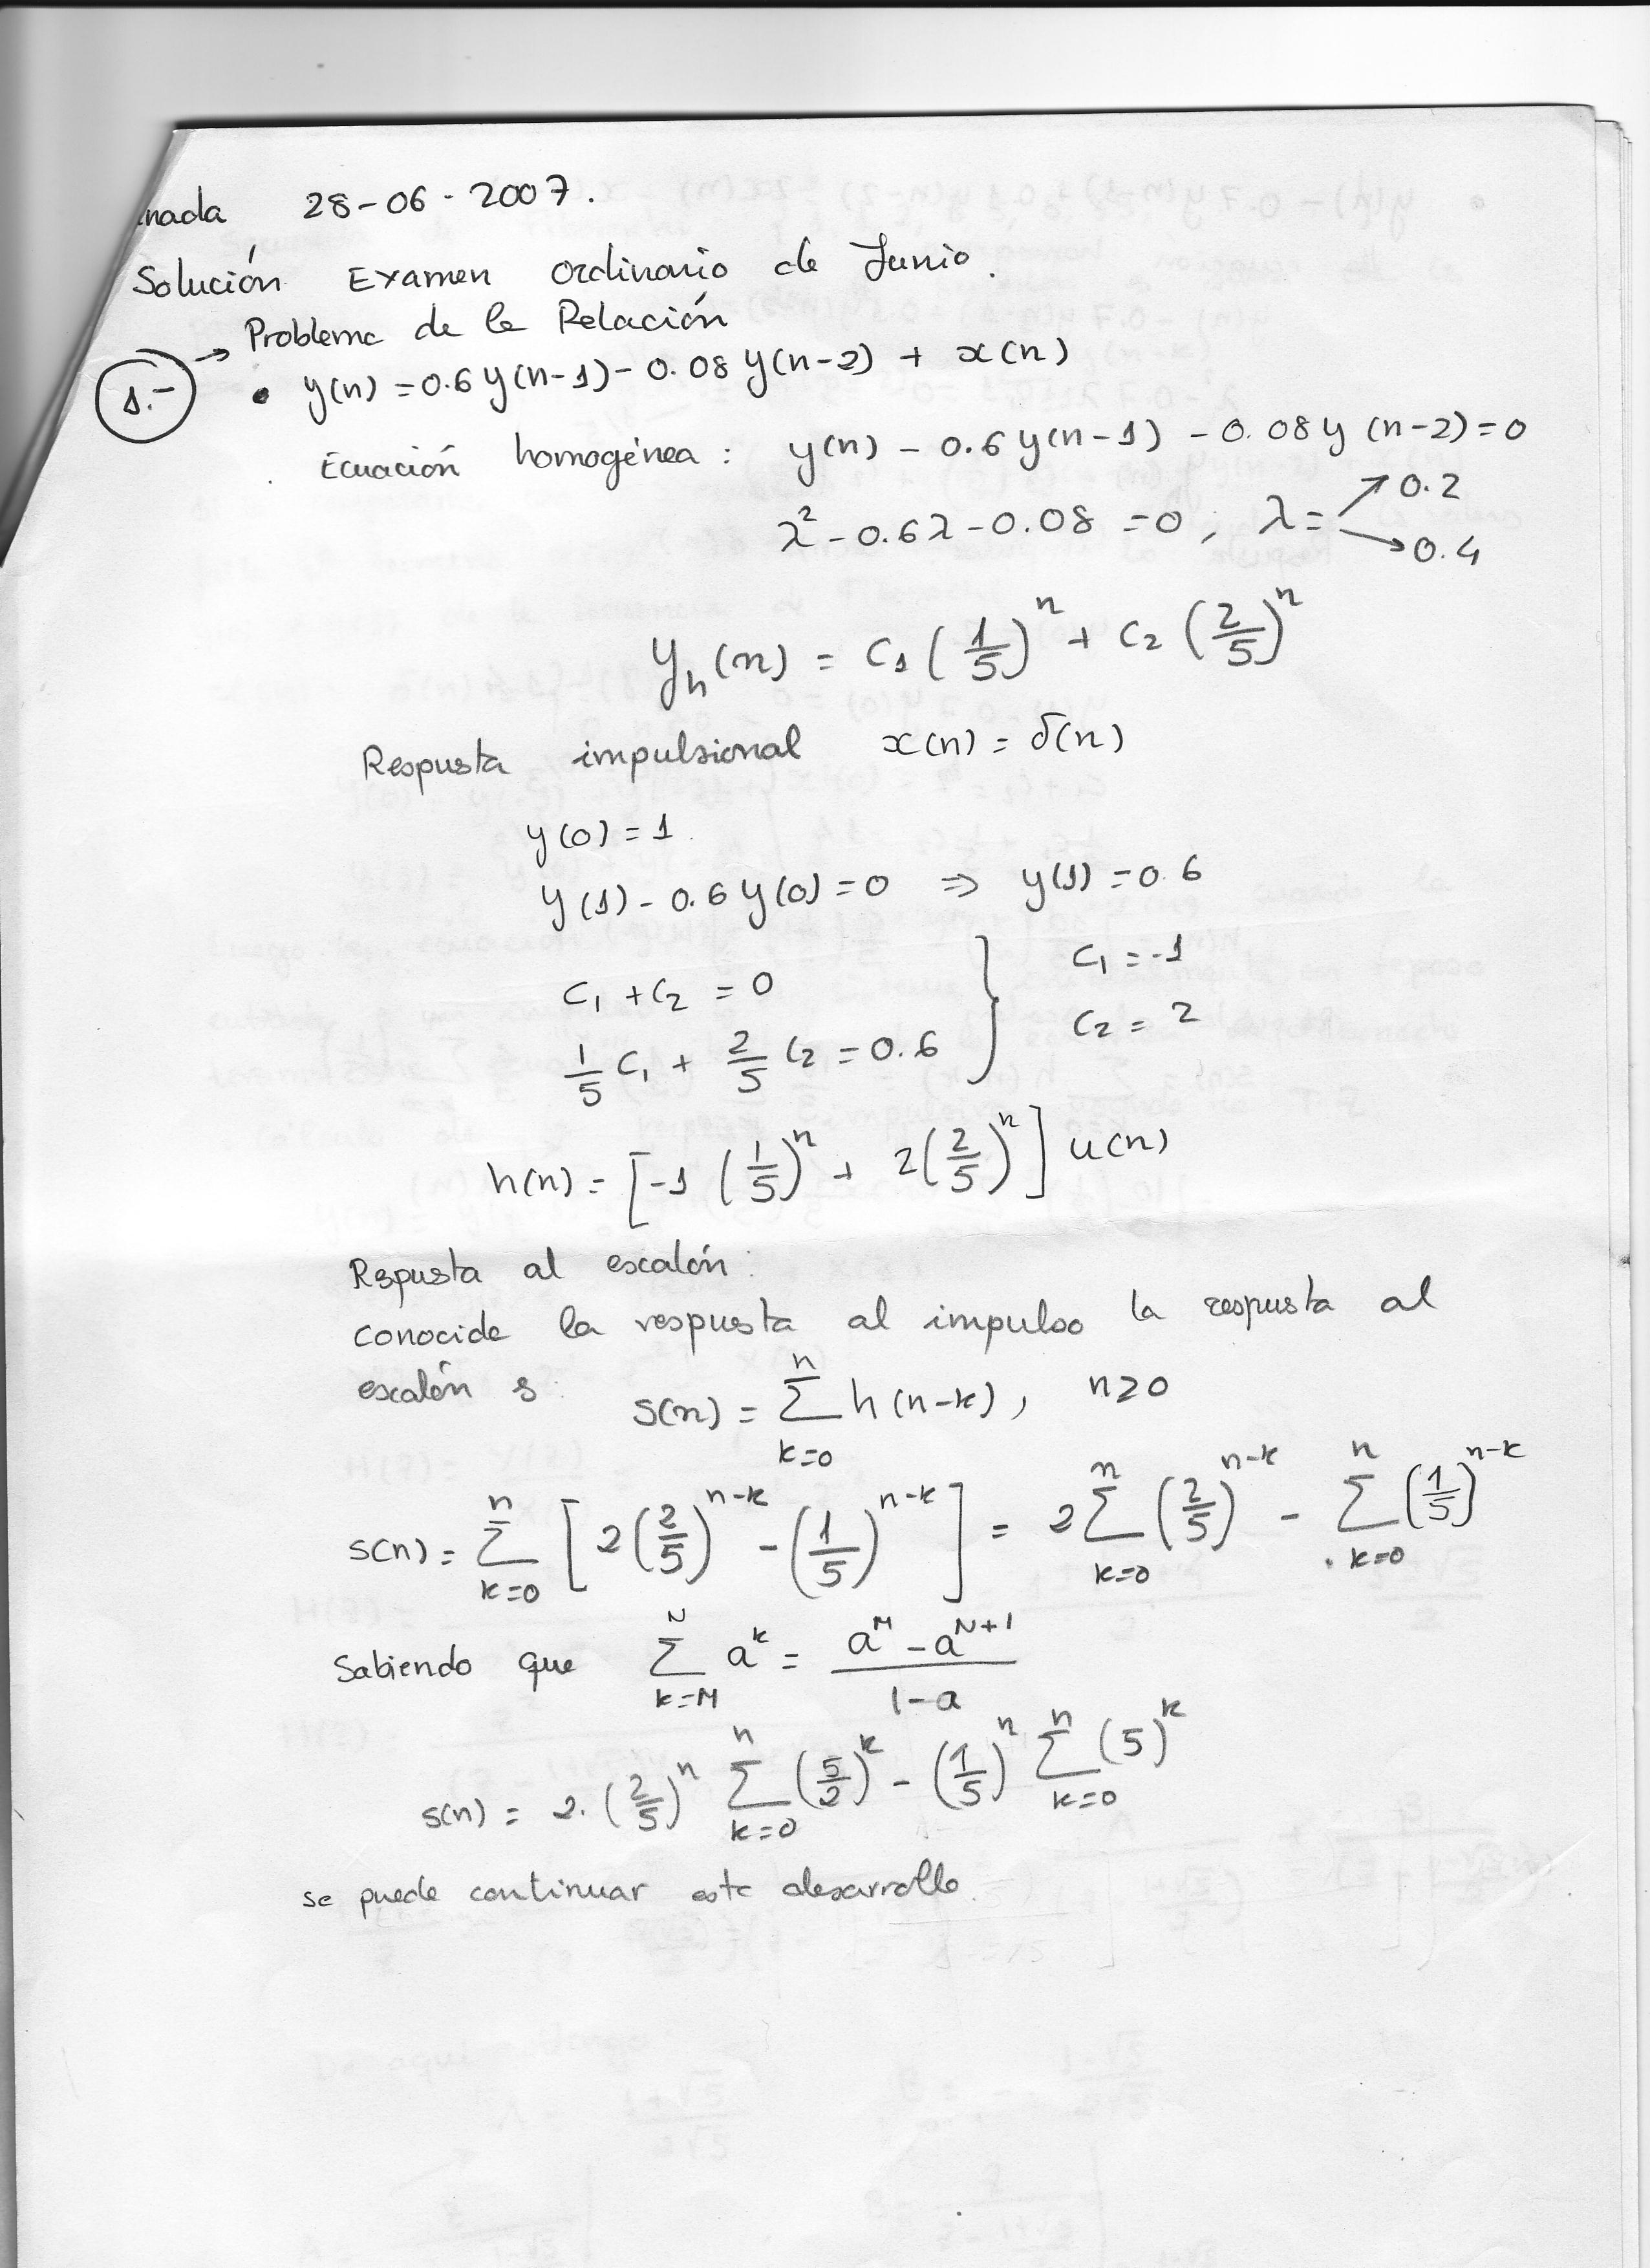 nada 28-06-2007.
Solución Examen Ordinario de Junio.
→ Problema de la Relación
1.- • y(n) = 0.6 y(n-1) - 0.08 y(n-2) + x(n)
Ecuación homogénea: y(n) - 0.6 y(n-1) - 0.08 y(n-2) = 0
λ² - 0.6λ - 0.08 = 0, λ = ↗ 0.2 ↘ 0.4
y_h(n) = C₁ (1/5)^n + C₂ (2/5)^n
Respusta impulsional x(n) = δ(n)
y(0) = 1
y(1) - 0.6 y(0) = 0 ⇒ y(1) = 0.6
C₁ + C₂ = 0 } C₁ = -1
1/5 C₁ + 2/5 C₂ = 0.6 } C₂ = 2
h(n) = [-1 (1/5)^n + 2 (2/5)^n] u(n)
Rspusta al escalón:
conocida la respuesta al impulso la respusta al
escalón s: s(n) = ∑_{k=0}^{n} h(n-k), n≥0
s(n) = ∑_{k=0}^{n} [2 (2/5)^{n-k} - (1/5)^{n-k}] = 2 ∑_{k=0}^{n} (2/5)^{n-k} - ∑_{k=0}^{n} (1/5)^{n-k}
Sabiendo que ∑_{k=M}^{N} a^k = (a^M - a^{N+1})/(1-a)
s(n) = 2·(2/5)^n ∑_{k=0}^{n} (5/2)^k - (1/5)^n ∑_{k=0}^{n} (5)^k
se puede continuar este desarrollo.